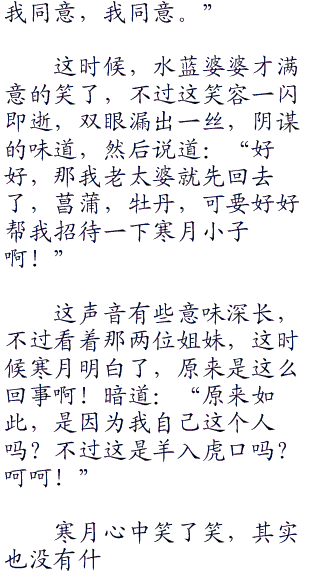 我同意，我同意。”
这时候，水蓝婆婆才满
意的笑了，不过这笑容一闪
即逝，双眼漏出一丝，阴谋
的味道，然后说道：“好
好，那我老太婆就先回去
了，菖蒲，牡丹，可要好好
帮我招待一下寒月小子
啊！”
这声音有些意味深长，
不过看着那两位姐妹，这时
候寒月明白了，原来是这么
回事啊！暗道：“原来如
此，是因为我自己这个人
吗？不过这是羊入虎口吗？
呵呵！”
寒月心中笑了笑，其实
也没有什